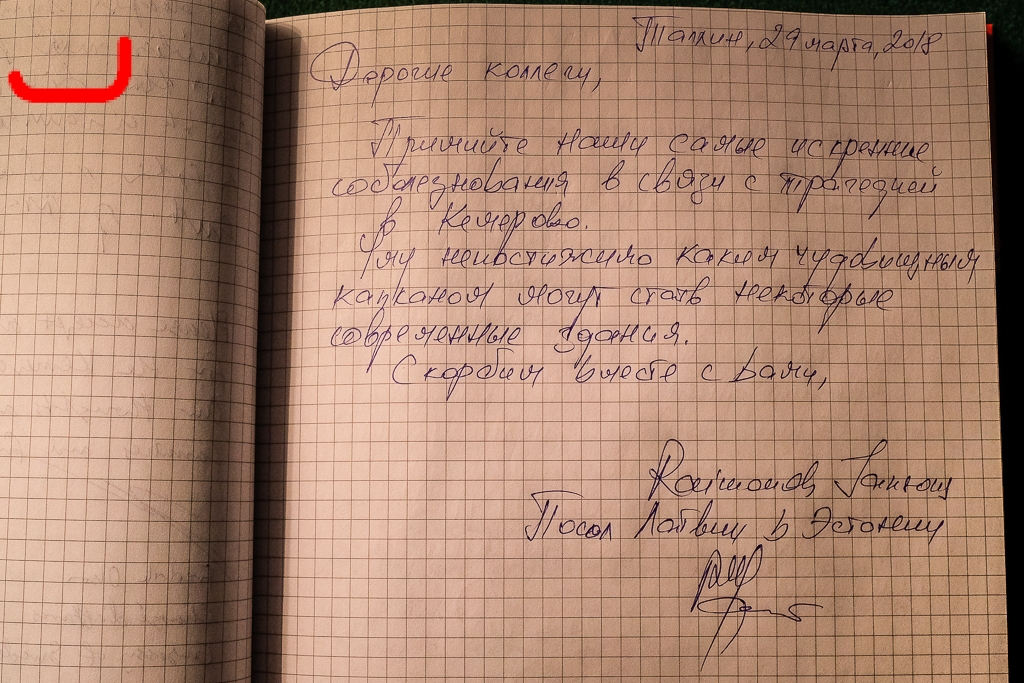 Таллин, 29 марта, 2018
Дорогие коллеги,
Примийте наши самые искренние
соболезнования в связи с трагедией
в Кемерово.
Уму непостижимо каким чудовищным
капканом могут стать некоторые
современные здания.
Скорбим вместе с Вами,
Raimonds
Посол Латвии в Эстонии